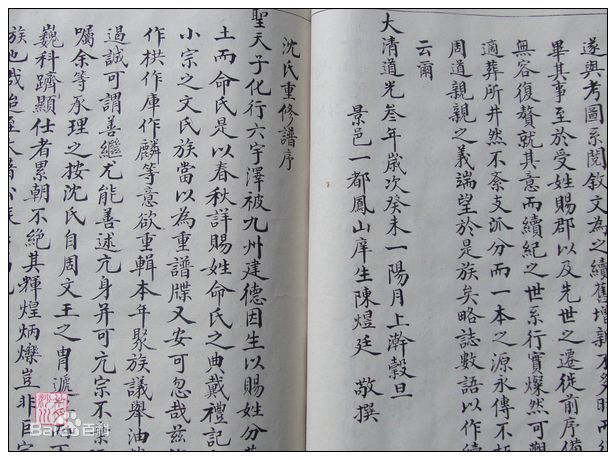 遂與考圖系閱敘文為之續舊增新不多時而
畢其事至於受姓賜郡以及先世之遷徙前序備
無容復贅就其意而續紀之世系行實燦然可觀
適葬所井然不紊支派分而一本之源永傳不
周道親親之義端望於是族矣略誌數語以作
云爾
大清道光叁年歲次癸未一陽月上澣穀旦
景邑一都鳳山庠生陳煜廷 敬撰
沈氏重修譜序
聖天子化行六宇澤被九州建德因生以賜姓分
土而命氏是以春秋詳賜姓命氏之典戴禮記
小宗之文氏族當以為重譜牒又安可忽哉茲
作栱作庫作麟等意欲重輯本年聚族議舉油
過誠可謂善繼尤能善述亢身并可亢宗不
囑余等承理之按沈氏自周文王之胄
巍科躋顯仕者累朝不絕其輝煌炳爍豈非
族也哉
Bai 百科